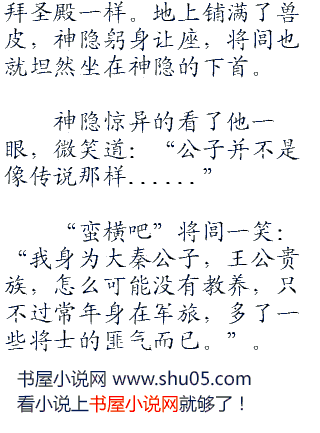 拜圣殿一样。地上铺满了兽
皮，神隐躬身让座，将闾也
就坦然坐在神隐的下首。
神隐惊异的看了他一
眼，微笑道：“公子并不是
像传说那样......”
“蛮横吧”将闾一笑：
“我身为大秦公子，王公贵
族，怎么可能没有教养，只
不过常年身在军旅，多了一
些将士的匪气而已。”。
书屋小说网 www.shu05.com
看小说上书屋小说网就够了！